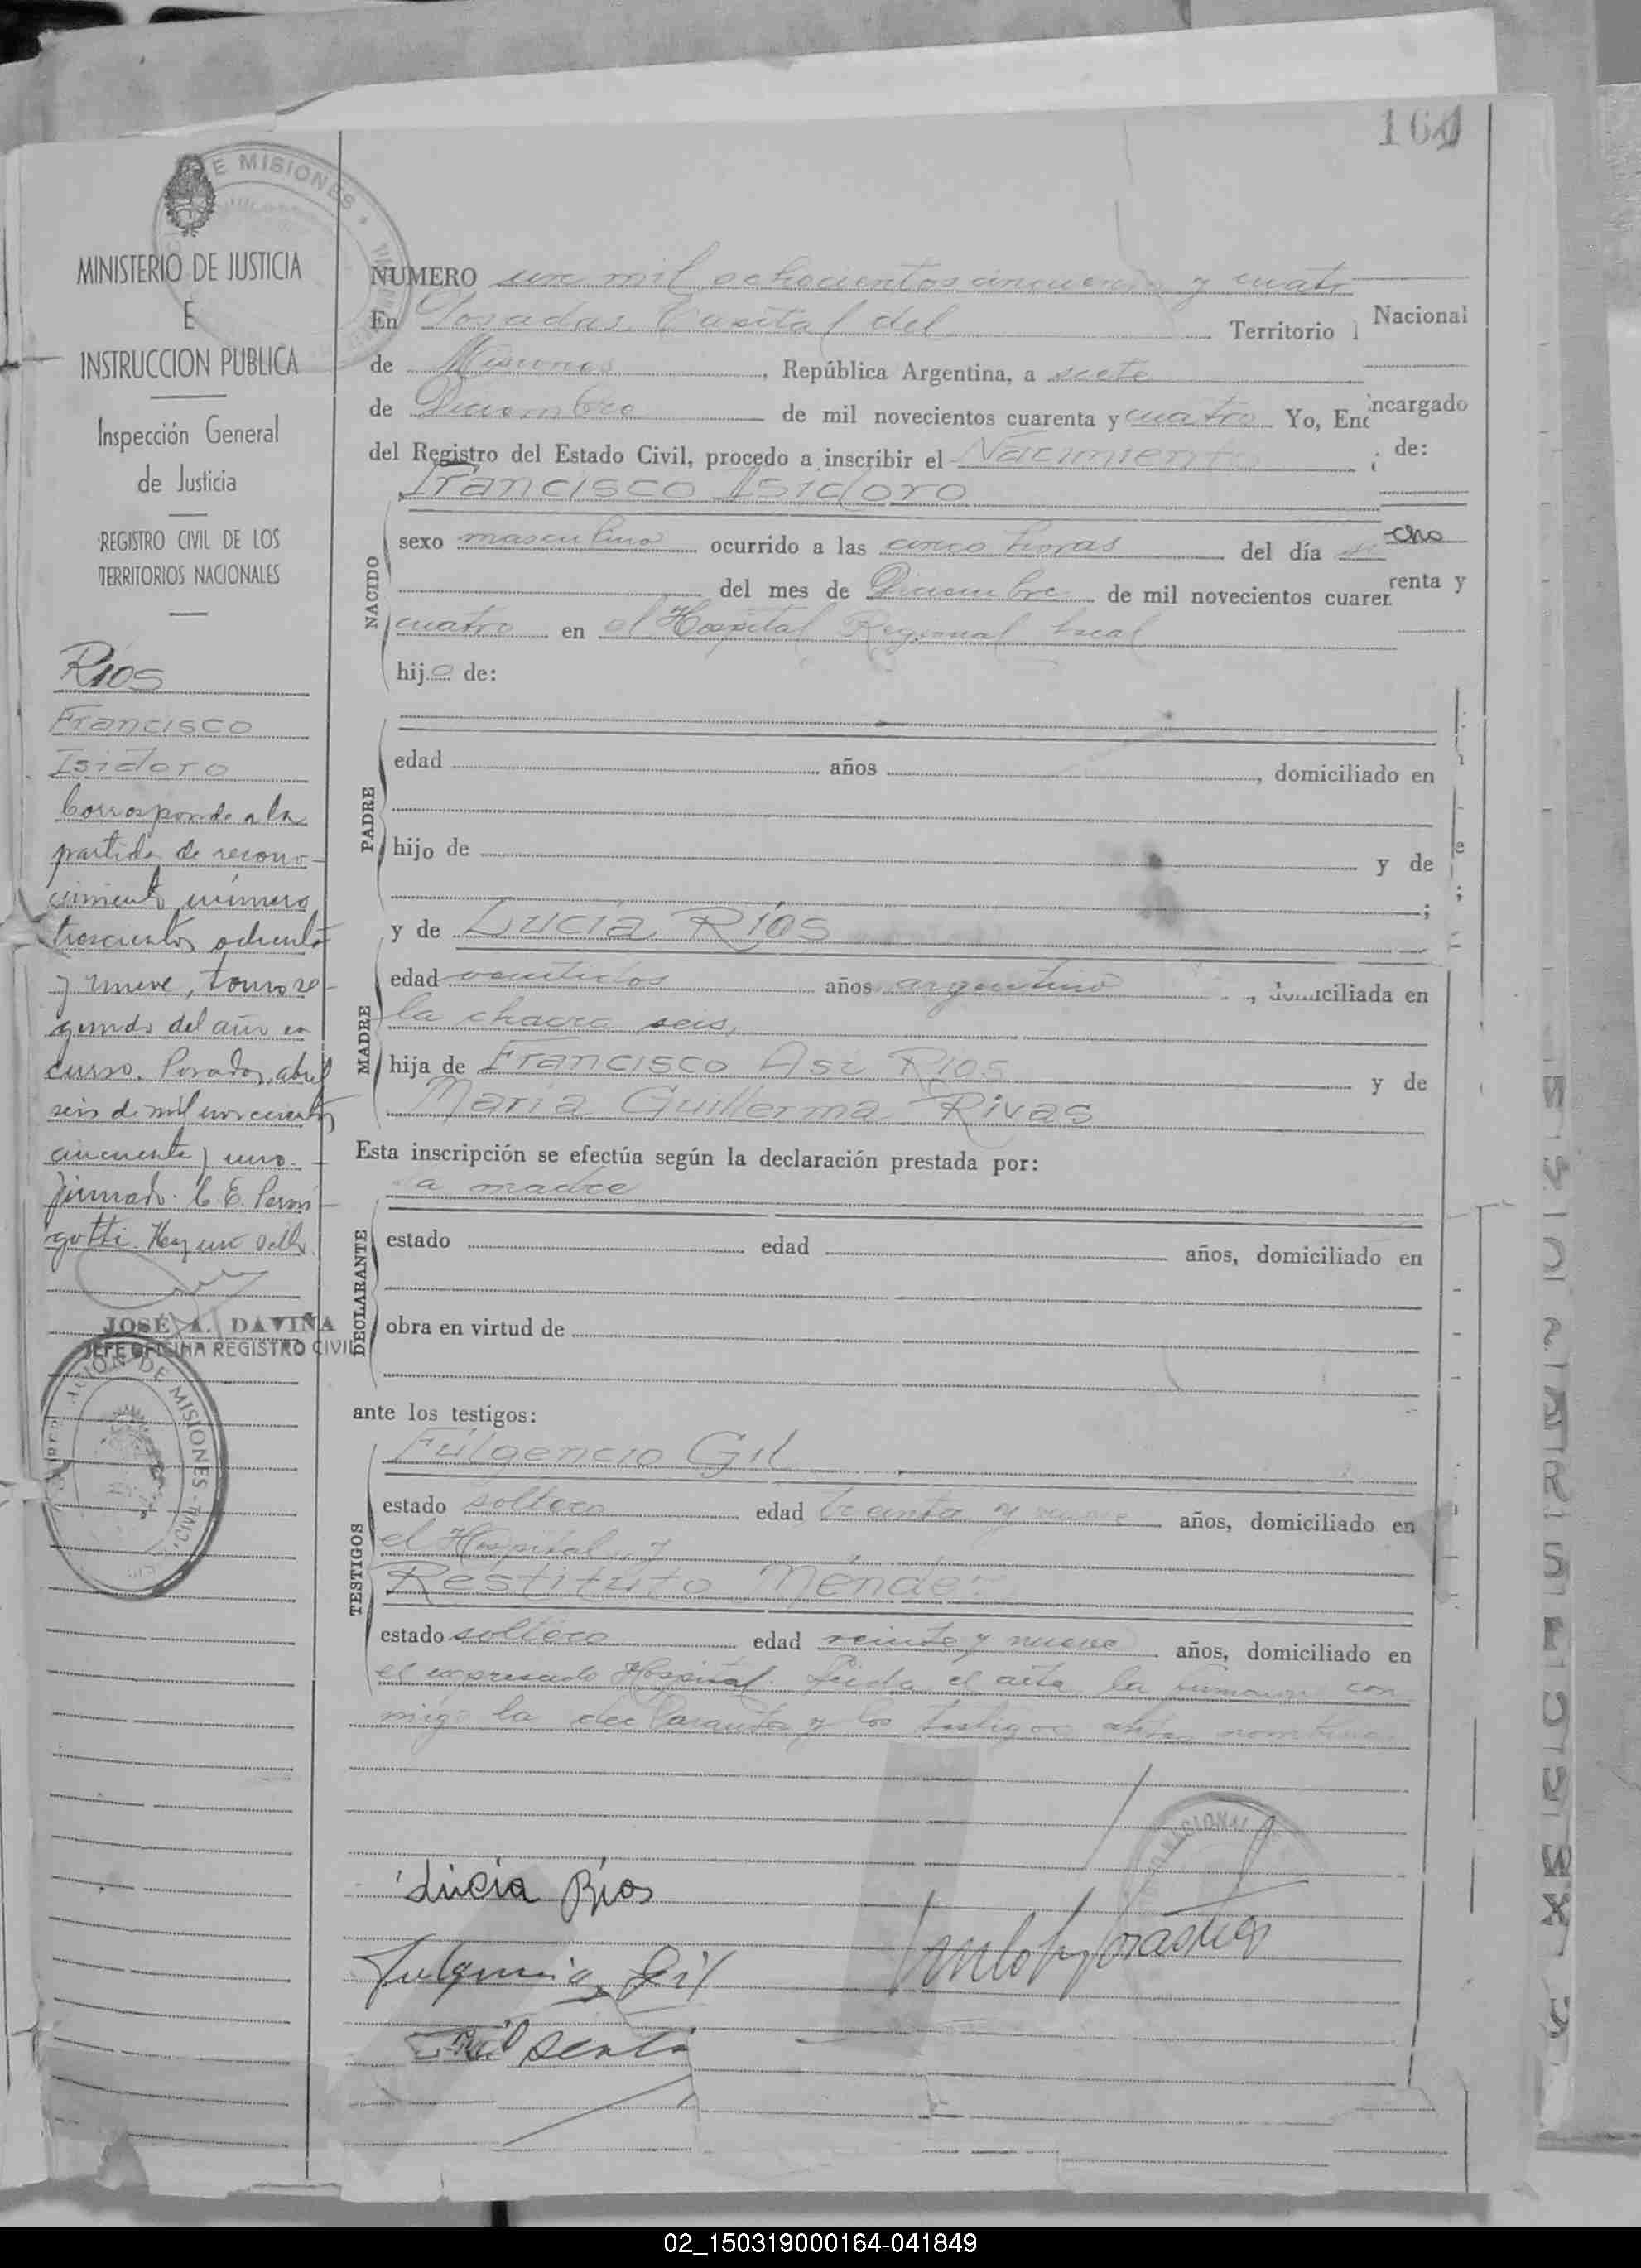 164
E MISIONES
MINISTERIO DE JUSTICIA
E
INSTRUCCION PUBLICA
Inspección General
de Justicia
REGISTRO CIVIL DE LOS
TERRITORIOS NACIONALES
Ríos
Francisco
Isidoro
Corresponde a la
partida de recono-
cimiento número
trescientos ochenta
y nueve, tomo se-
gundo del año en
curso. Posadas, abril
seis de mil novecientos
cincuenta y uno.
firmado. C. E.
Hay un sello.
JOSÉ A. DAVIÑA
JEFE OFICINA REGISTRO CIVIL
DE MISIONES
NUMERO un mil ochocientos cincuenta y cuatro
En Posadas Capital del Territorio Nacional
de Misiones, República Argentina, a siete
de Diciembre de mil novecientos cuarenta y cuatro Yo, Encargado
del Registro del Estado Civil, procedo a inscribir el Nacimiento de:
Francisco Isidoro
NACIDO
sexo masculino ocurrido a las cinco horas del día
del mes de Diciembre de mil novecientos cuarenta y
cuatro en el Hospital Regional local
hijo de:
PADRE
edad años , domiciliado en
hijo de y de
;
y de Lucía Ríos
MADRE
edad veintidos años argentina , domiciliada en
la chacra seis,
hija de Francisco Asi Ríos y de
María Guillerma Rivas
Esta inscripción se efectúa según la declaración prestada por:
a madre
DECLARANTE
estado edad años, domiciliado en
obra en virtud de
ante los testigos:
Fúlgencio Gil
TESTIGOS
estado soltero edad treinta y nueve años, domiciliado en
el Hospital y
Restituto Méndez
estado soltero edad veinte y nueve años, domiciliado en
el expresado Hospital. Leída el acta la firmaron con
migo la declarante y los testigos antes
Lucia Rios
Fulgencio Gil
02_150319000164-041849